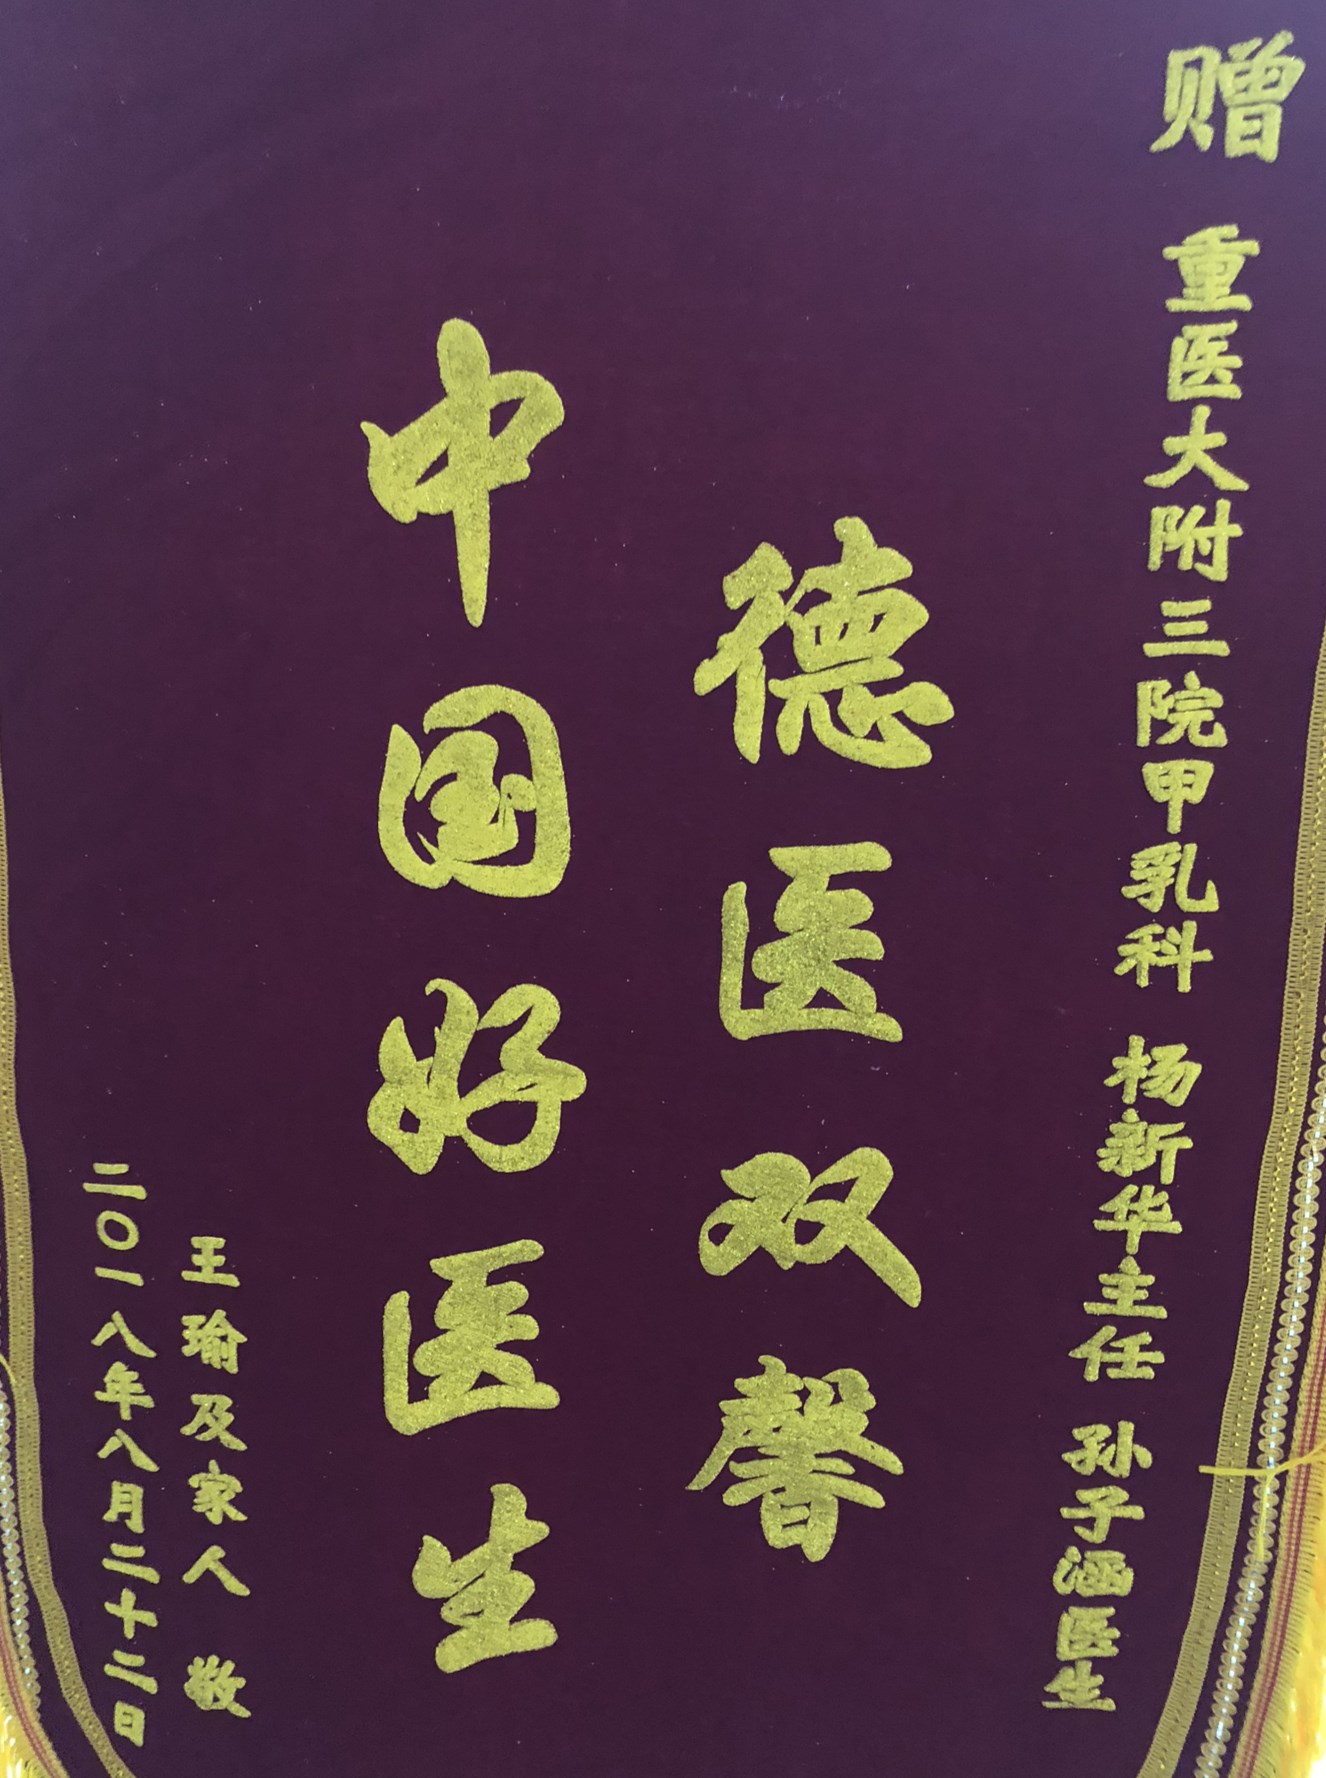 赠 重医大附三院甲乳科 杨新华主任 孙子涵医生
德医双馨
中国好医生
王瑜及家人 敬
二〇一八年八月二十二日